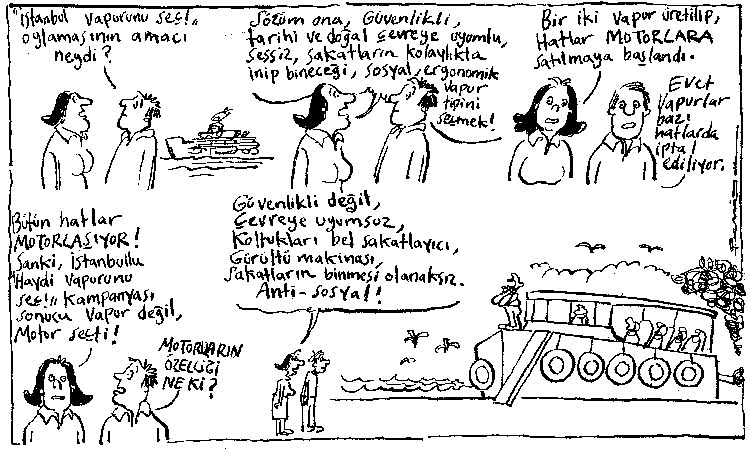 "İstanbul vapurunu seç!"
oylamasının amacı
neydi?
Sözüm ona, Güvenlikli,
tarihi ve doğal çevreye uyumlu,
sessiz, sakatların kolaylıkta
inip bineceği, sosyal, ergonomik
vapur
tipini
seçmek!
Bir iki vapur üretilip,
Hatlar MOTORLARA
satılmaya başlandı.
Evet
vapurlar
bazı
hatlarda
iptal
ediliyor.
Bütün hatlar
MOTORLAŞIYOR!
Sanki, İstanbullu
Haydi vapurunu
seç!" kampanyası
sonucu vapur değil,
Motor seçti!
MOTORLARIN
ÖZELLİĞİ
NE Kİ?
Güvenlikli değil,
Çevreye uyumsuz,
Koltukları bel sakatlayıcı,
Gürültü makinası,
Sakatların binmesi olanaksız.
Anti-sosyal!